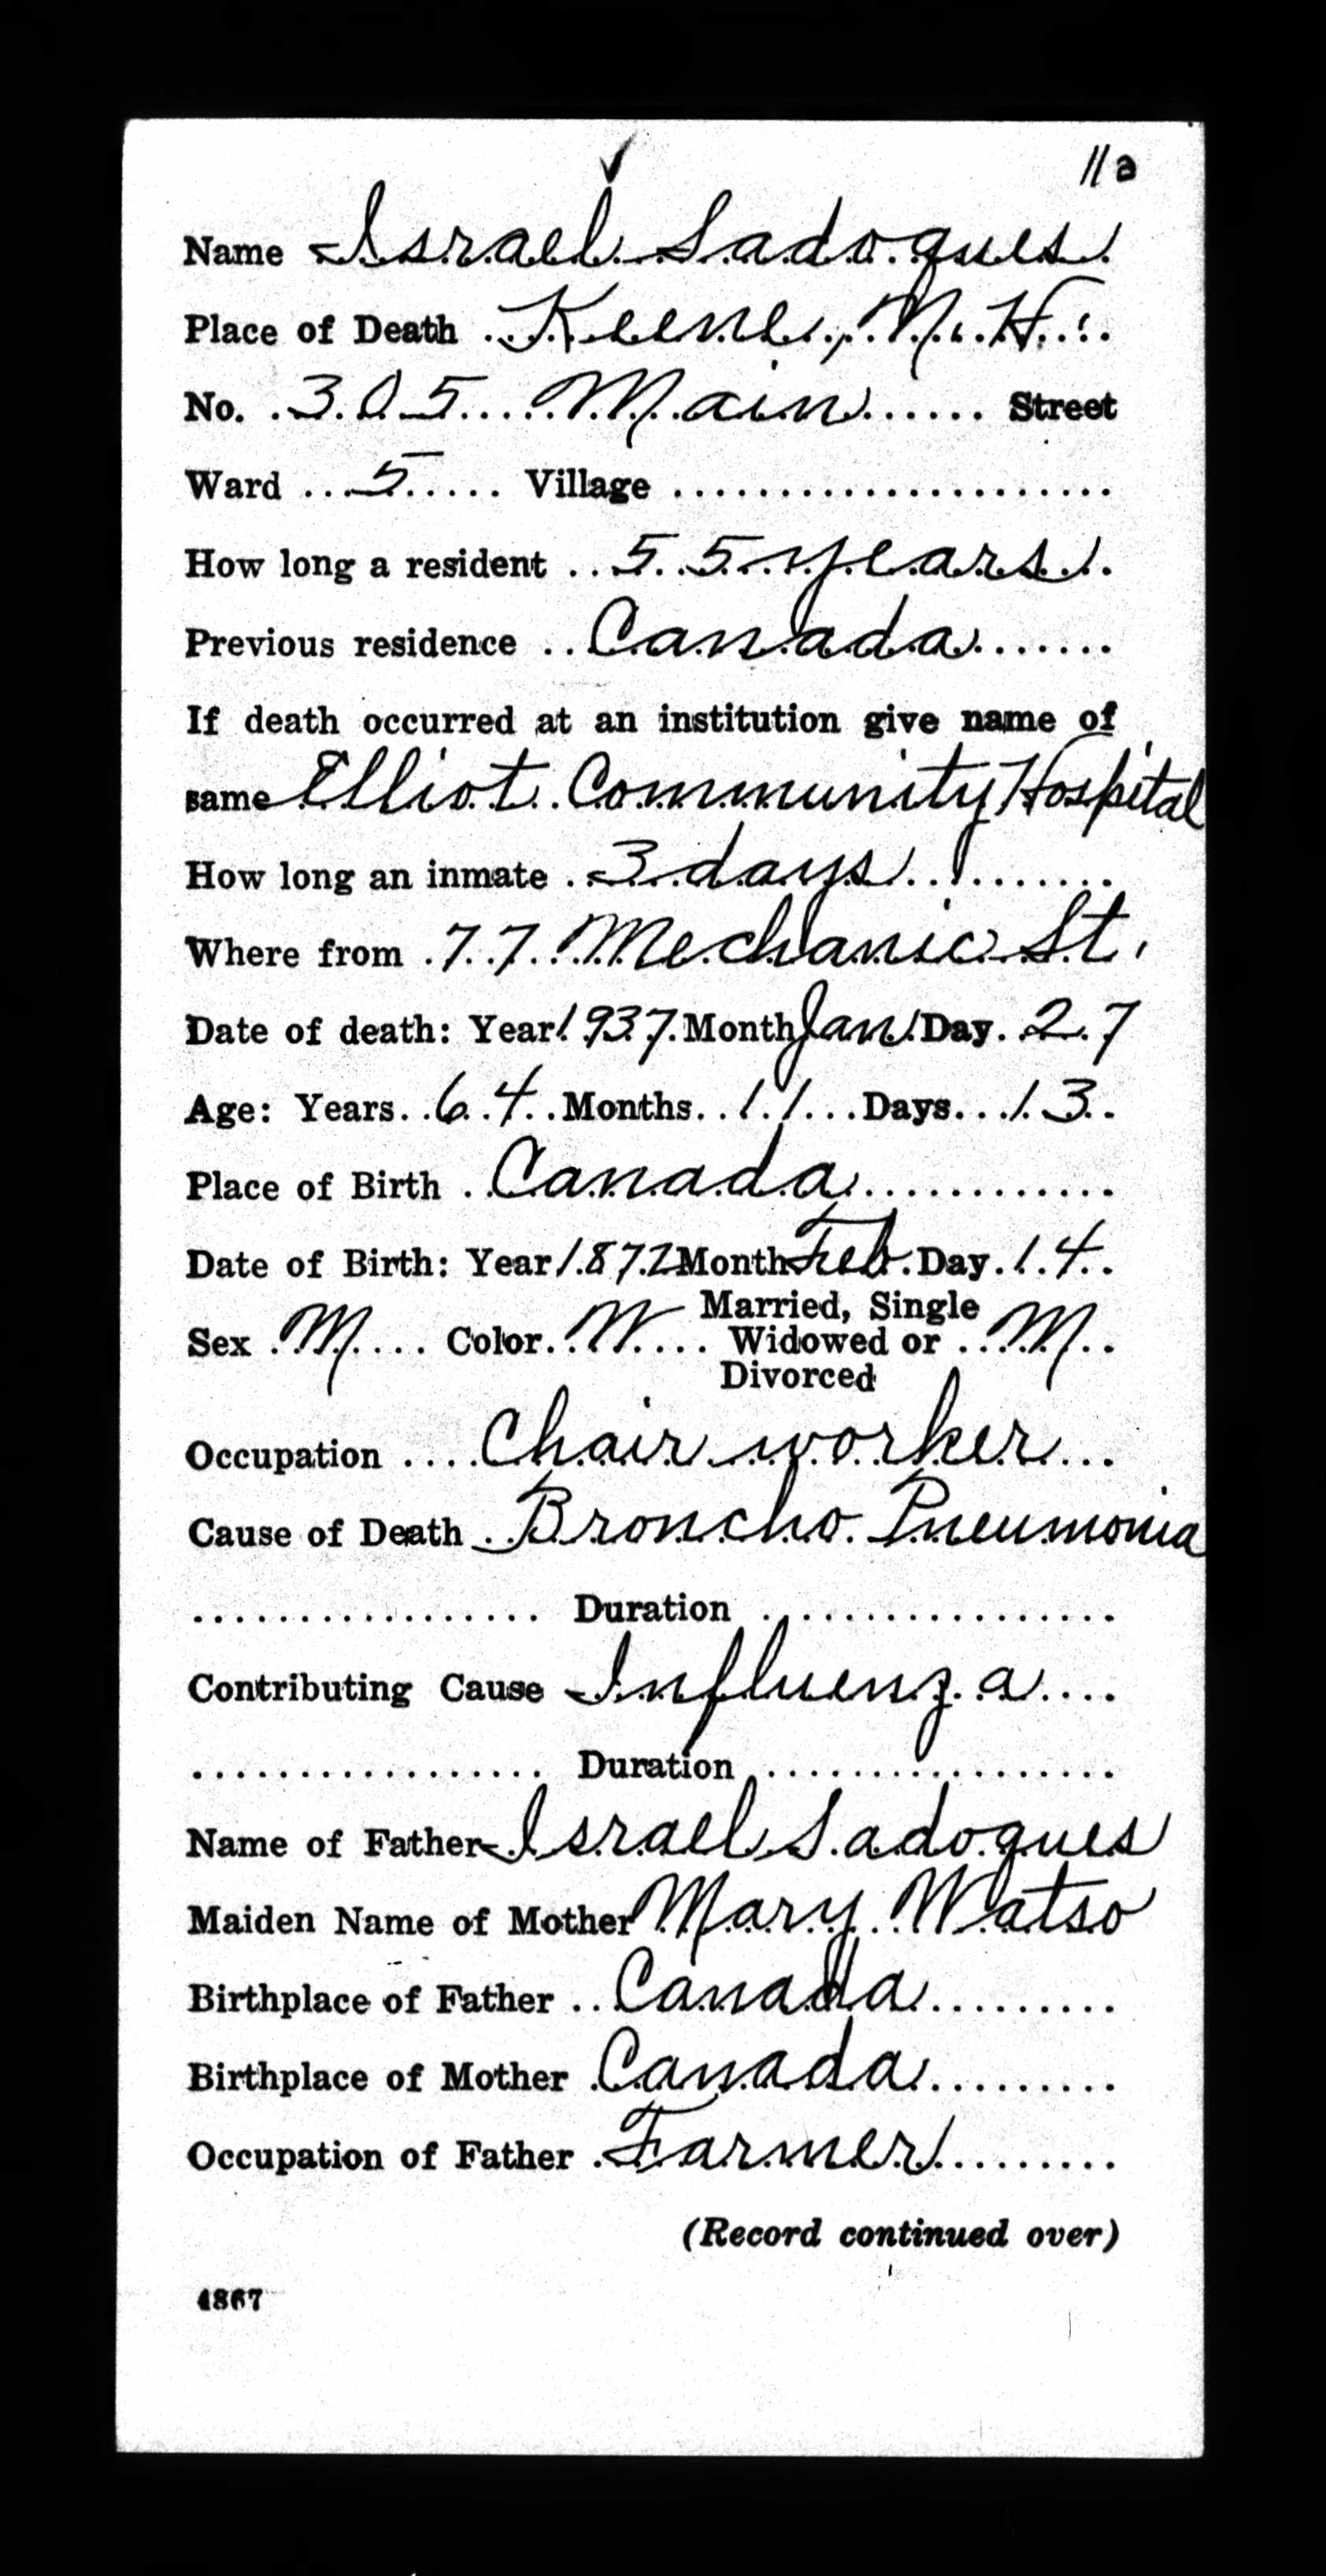 11a
Name Israel Sadoques
Place of Death Keene, N.H.
No. 305 Main Street
Ward 5 Village
How long a resident 55 years
Previous residence Canada
If death occurred at an institution give name of
same Elliot Community Hospital
How long an inmate 3 days
Where from 77 Mechanic St.
Date of death: Year 1937 Month Jan Day 27
Age: Years 64 Months 11 Days 13
Place of Birth Canada
Date of Birth: Year 1872 Month Feb Day 14
Sex M Color W Married, Single Widowed or Divorced M
Occupation Chair worker
Cause of Death Broncho Pneumonia
Duration
Contributing Cause Influenza
Duration
Name of Father Israel Sadoques
Maiden Name of Mother Mary Watso
Birthplace of Father Canada
Birthplace of Mother Canada
Occupation of Father Farmer
(Record continued over)
4867